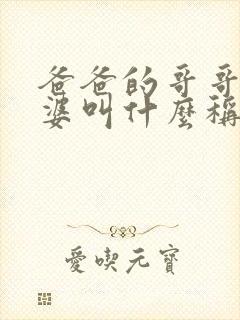 爸爸的哥哥
婆叫什麼稱
愛喫元寶